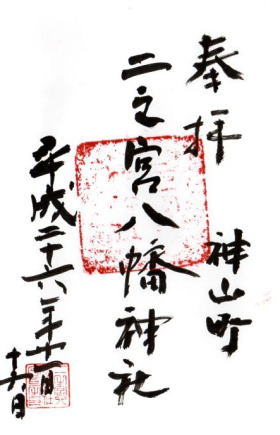 奉拝 神山町
二之宮八幡神社
平成二十六年十一月
十六日